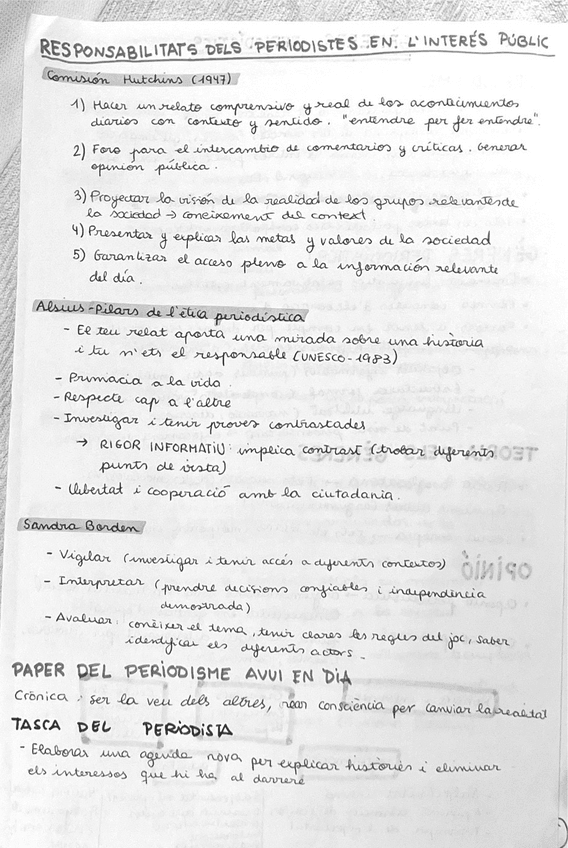 RESPONSABILITATS DELS PERIODISTES EN L'INTERÉS PÚBLIC
Comisión Hutchins (1947)
1) Hacer un relato comprensivo y real de los acontecimientos
diarios con contexto y sentido. "entendre per fer entendre".
2) Foro para el intercambio de comentarios y críticas. Generar
opinión pública.
3) Proyectar la visión de la realidad de los grupos relevantes de
la sociedad → coneixement del context.
4) Presentar y explicar las metas y valores de la sociedad
5) Garantizar el acceso pleno a la información relevante
del día.
Alsius-Pilars de l'ètica periodística
- El teu relat aporta una mirada sobre una història
i tu n'ets el responsable (UNESCO-1983)
- Primacia a la vida.
- Respecte cap a l'altre
- Investigar i tenir proves contrastades
→ RIGOR INFORMATIU: implica contrast (trobar diferents
punts de vista)
- Llibertat i cooperació amb la ciutadania.
Sandra Borden
- Vigilar (investigar i tenir accés a diferents contextos)
- Interpretar (prendre decisions confiables i independència
demostrada)
- Avaluar: conèixer el tema, tenir clares les regles del joc, saber
identificar els diferents actors.
PAPER DEL PERIODISME AVUI EN DIA
Crònica: ser la veu dels altres, consciència per canviar la realitat
TASCA DEL PERIODISTA
- Elaborar una agenda nova per explicar històries i eliminar
els interessos que hi ha al darrere